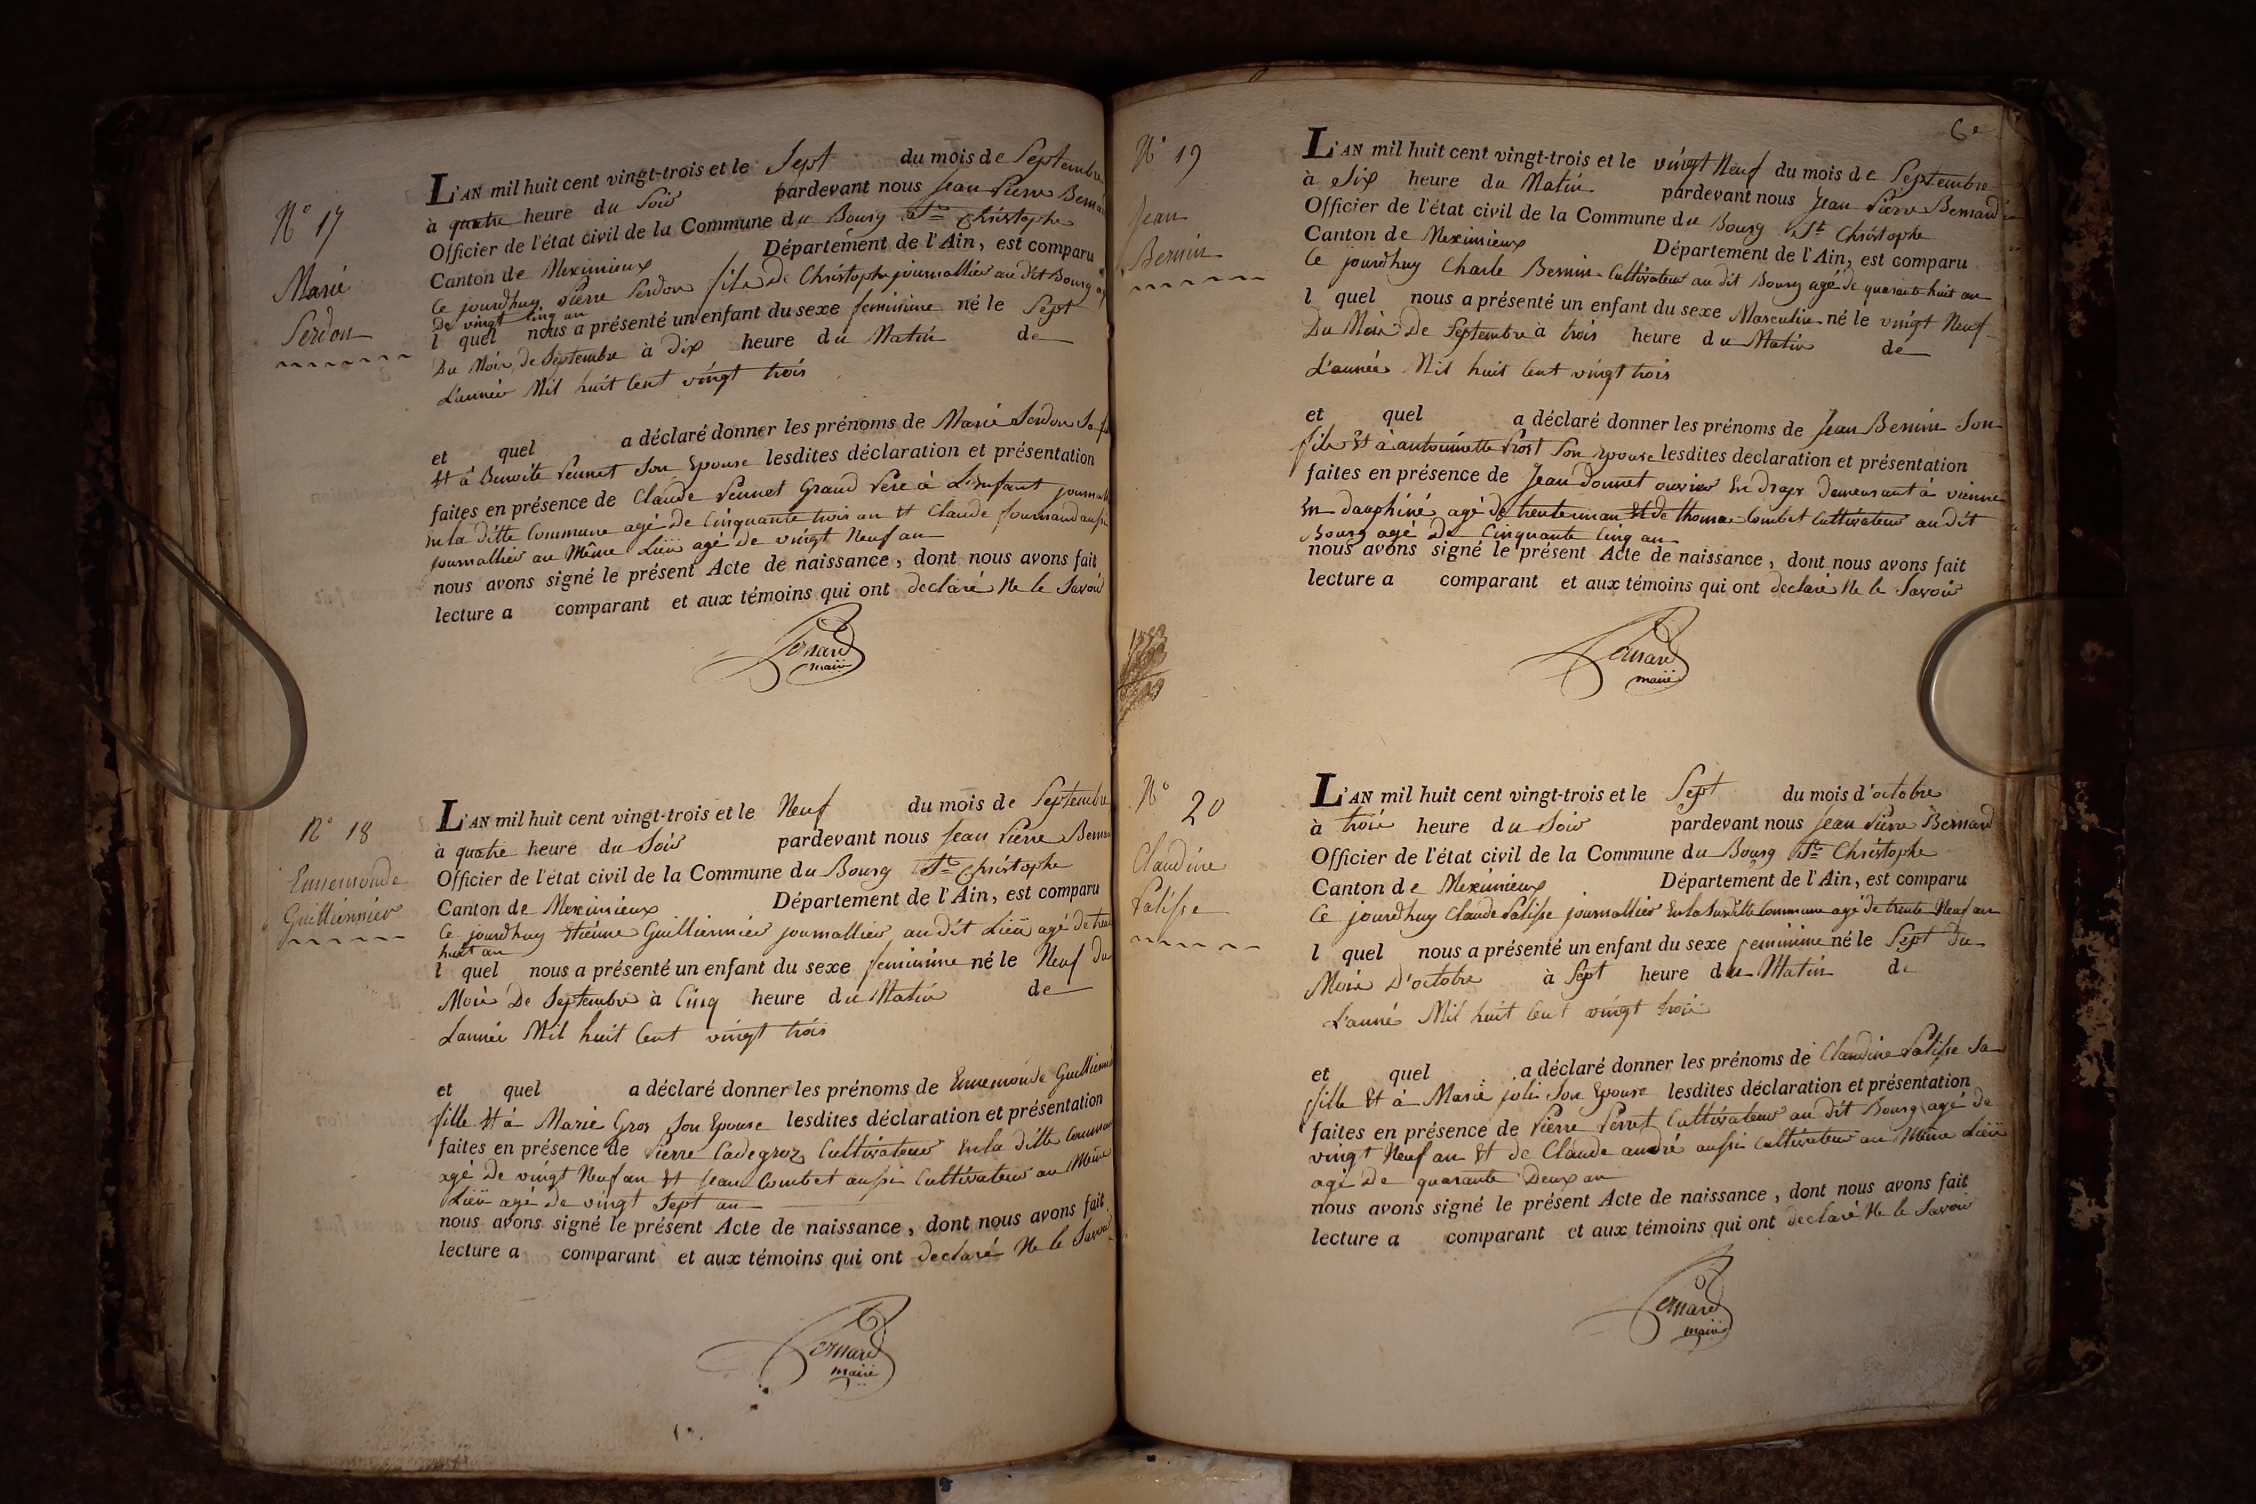 N° 17
Marie
Perdon
L'AN mil huit cent vingt-trois et le Sept du mois de Septembre
à quatre heure du Soir pardevant nous Jean Pierre Bernard
Officier de l'état civil de la Commune du Bourg St Christophe
Canton de Meximieux Département de l'Ain, est comparu
Ce jourdhuy Pierre Perdon fils De Christophe journallier au dit Bourg agé
de vingt Cinq an
l quel nous a présenté un enfant du sexe feminine né le Sept
Du Mois de Septembre à Dix heure du Matin de
L'année Mil huit Cent vingt trois
et quel a déclaré donner les prénoms de Marie Perdon Sa
Et à Benoite Peunet Son Epouse lesdites déclaration et présentation
faites en présence de Claude Peunet Grand Pere à L'Enfant
En la ditte Commune agé de Cinquante trois an Et Claude aussi
journallier au Même Lieü agé de vingt Neuf an
nous avons signé le présent Acte de naissance, dont nous avons fait
lecture a comparant et aux témoins qui ont declaré Ne le Savoir
Bernard
maire
N° 18
Ennemonde
Guilliennier
L'AN mil huit cent vingt-trois et le Neuf du mois de Septembre
à quatre heure du Soir pardevant nous Jean Pierre Bernard
Officier de l'état civil de la Commune du Bourg St Christophe
Canton de Meximieux Département de l'Ain, est comparu
Ce jourdhuy Etiénne Guilliennier journallier au dit Lieü agé de
huit an
l quel nous a présenté un enfant du sexe feminine né le Neuf Du
Mois De Septembre à Cinq heure du Matin de
L'année Mil huit Cent vingt trois
et quel a déclaré donner les prénoms de Ennemonde Guilliennier
fille Et à Marie Gros Son Epouse lesdites déclaration et présentation
faites en présence de Pierre Cadegroz Cultivateur En la ditte Commune
agé De vingt Neuf an Et Jean Combet aussi Cultivateur au Même
Lieü agé de vingt Sept an
nous avons signé le présent Acte de naissance, dont nous avons fait
lecture a comparant et aux témoins qui ont declaré Ne le Savoir
Bernard
maire
6e
N° 19
Jean
Bernin
L'AN mil huit cent vingt-trois et le vingt Neuf du mois de Septembre
à Six heure du Matin pardevant nous Jean Pierre Bernard
Officier de l'état civil de la Commune du Bourg St Christophe
Canton de Meximieux Département de l'Ain, est comparu
Ce jourdhuy Charle Bernin Cultivateur au dit Bourg agé de quarante huit an
l quel nous a présenté un enfant du sexe Masculin né le vingt Neuf
Du Mois De Septembre à trois heure du Matin de
L'année Mil huit Cent vingt trois
et quel a déclaré donner les prénoms de Jean Bernin Son
fils Et à antoinette Prost Son Epouse lesdites declaration et présentation
faites en présence de Jean Donnet ouvrier En Draps Demeurant à vienne
En Dauphiné agé de an Et de thomas Combet Cultivateur au dit
Bourg agé De Cinquante Cinq an
nous avons signé le présent Acte de naissance, dont nous avons fait
lecture a comparant et aux témoins qui ont declaré Ne le Savoir
Bernard
maire
N° 20
Claudine
Palisse
L'AN mil huit cent vingt-trois et le Sept du mois d'octobre
à trois heure du Soir pardevant nous Jean Pierre Bernard
Officier de l'état civil de la Commune du Bourg St Christophe
Canton de Meximieux Département de l'Ain, est comparu
Ce jourdhuy Claude Palisse journallier En la Susditte Commune agé de trente Neuf an
l quel nous a présenté un enfant du sexe feminine né le Sept Du
Mois D'octobre à Sept heure du Matin de
L'anné Mil huit Cent vingt trois
et quel a déclaré donner les prénoms de Claudine Palisse Sa
fille Et à Marie joli Son Epouse lesdites déclaration et présentation
faites en présence de Pierre Perret Cultivateur au dit Bourg agé de
vingt Neuf an Et de Claude andré aussi Cultivateur au Même Lieü
agé De quarante Deux an
nous avons signé le présent Acte de naissance, dont nous avons fait
lecture a comparant et aux témoins qui ont declaré Ne le Savoir
Bernard
maire